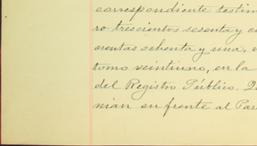 correspondiente testim
ro trescientos sesenta y 
cientas ochenta y una,
tomo veintiuno, en la
del Registro Público. 
nían en frente al Par